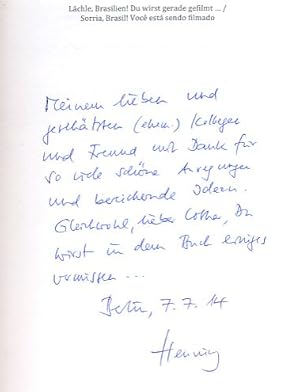 Lächle, Brasilien! Du wirst gerade gefilmt ... /
Sorria, Brasil! Você está sendo filmado
Meinem lieben und
geschätzten (ehem.) Kollegen
und Freund mit Dank für
so viele schöne Anregungen
und bereichernde Ideen.
Gleichwohl, lieber Lothar, Du
wirst in dem Buch einiges
vermissen ...
Berlin, 7.7.14
Henning